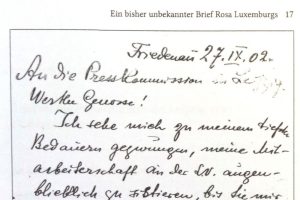 Ein bisher unbekannter Brief Rosa Luxemburgs 17
Friedenau 27. IX. 02.
An die Presskommission in
Werte Genossen!
Ich sehe mich zu meinem tiefsten
Bedauern gezwungen, meine Mit-
arbeiterschaft an der LV. augen-
blicklich zu sistieren, bis Sie mir